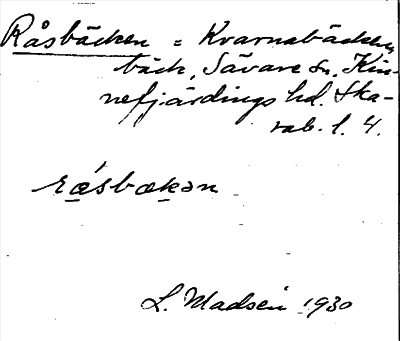 Råsbäcken = Kvarnabäcken,
bäck, Sävare sn, Kin-
nefjärdings hd. Ska-
rab. l. 4.
rǽsbækən
L. Madsen 1930